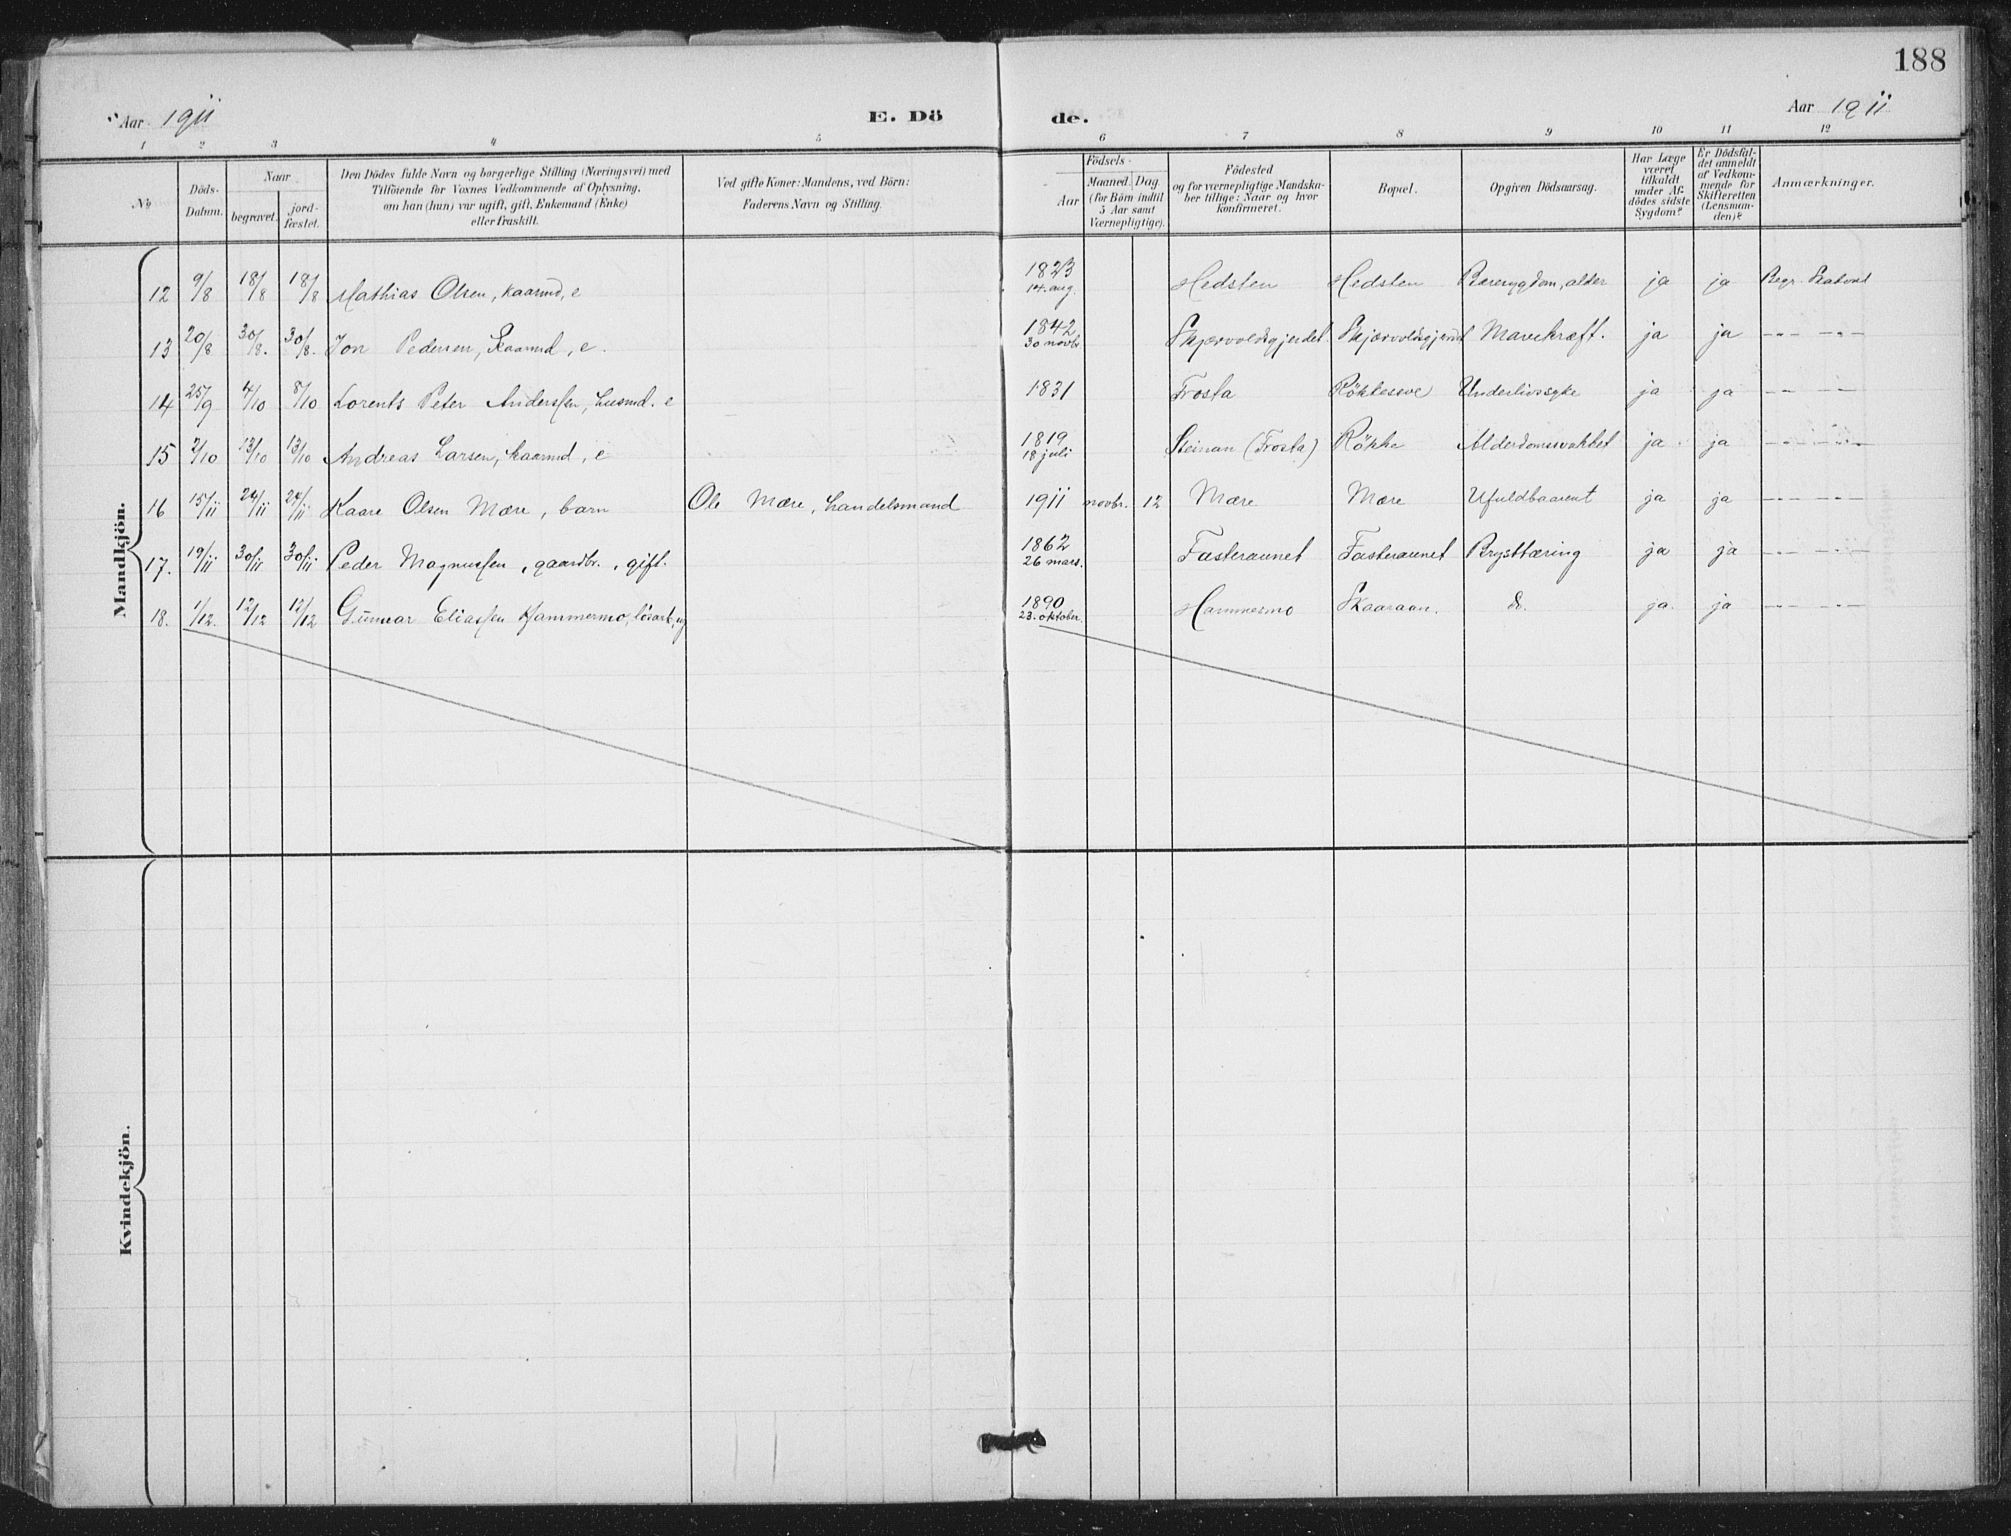 188
Aar 1911
E. Dö de.
Aar 1911
1 2 3 4 5 6 7 8 9 10 11 12
No
Döds-Datum.
Naar
begravet.
jord-fæstet.
Den Dödes fulde Navn og borgerlige Stilling (Næringsvei) med
Tilföiende for Voxnes Vedkommende af Oplysning,
om han (hun) var ugift, gift, Enkemand (Enke)
eller fraskilt.
Ved gifte Koner: Mandens, ved Börn:
Faderens Navn og Stilling.
Födsels-
Aar
Maaned. Dag.
(for Börn indtil
5 Aar samt
Værnepligtige).
Födested
og for værnepligtige Mandska-
ber tillige: Naar og hvor
konfirmeret.
Bopæl.
Opgiven Dödsaarsag.
Har Læge
været
tilkaldt
under Af-
dödes sidste
Sygdom?
Er Dödsfal-
det anmeldt
af Vedkom-
mende for
Skifteretten
(Lensman-
den)?
Anmærkninger.
Mandkjön.
12 9/8 18/8 18/8 Mathias Olsen, kaarmd, e 1823 14. aug. Hedsten Hedsten alder ja ja Begr.
13 20/8 30/8. 30/8. Jon Pedersen, kaarmd, e. 1842 30 novbr. Skjærvoldsgjerdet Mavekræft. ja ja -"- -"-
14 25/9 4/10 8/10 Lorents Peter Anderssen, husmd. e 1831 Frosta Underlivssyke ja ja -"- -"-
15 2/10 13/10 13/10 Andreas Larsen, kaarmd, e 1819 18 juli Steinan (Frosta) Rökke ja ja -"- -"-
16 15/11 24/11 24/11 Kaare Olsen Mære, barn Ole Mære, handelsmand 1911 novbr. 12 Mære Mære Ufuldbaarent ja ja -"- -"-
17. 19/11 30/11 30/11 Peder Magnussen, gaardbr., gift. 1862 26 mars. Fasteraunet Fasteraunet Brysttæring ja ja -"- -"-
18. 1/12. 12/12 12/12 Gunnar Eliassen Hammermo, lösarb, ug 1890 23. oktober. Hammermo Skaaraan. do. ja ja -"- -"-
Kvindekjön.